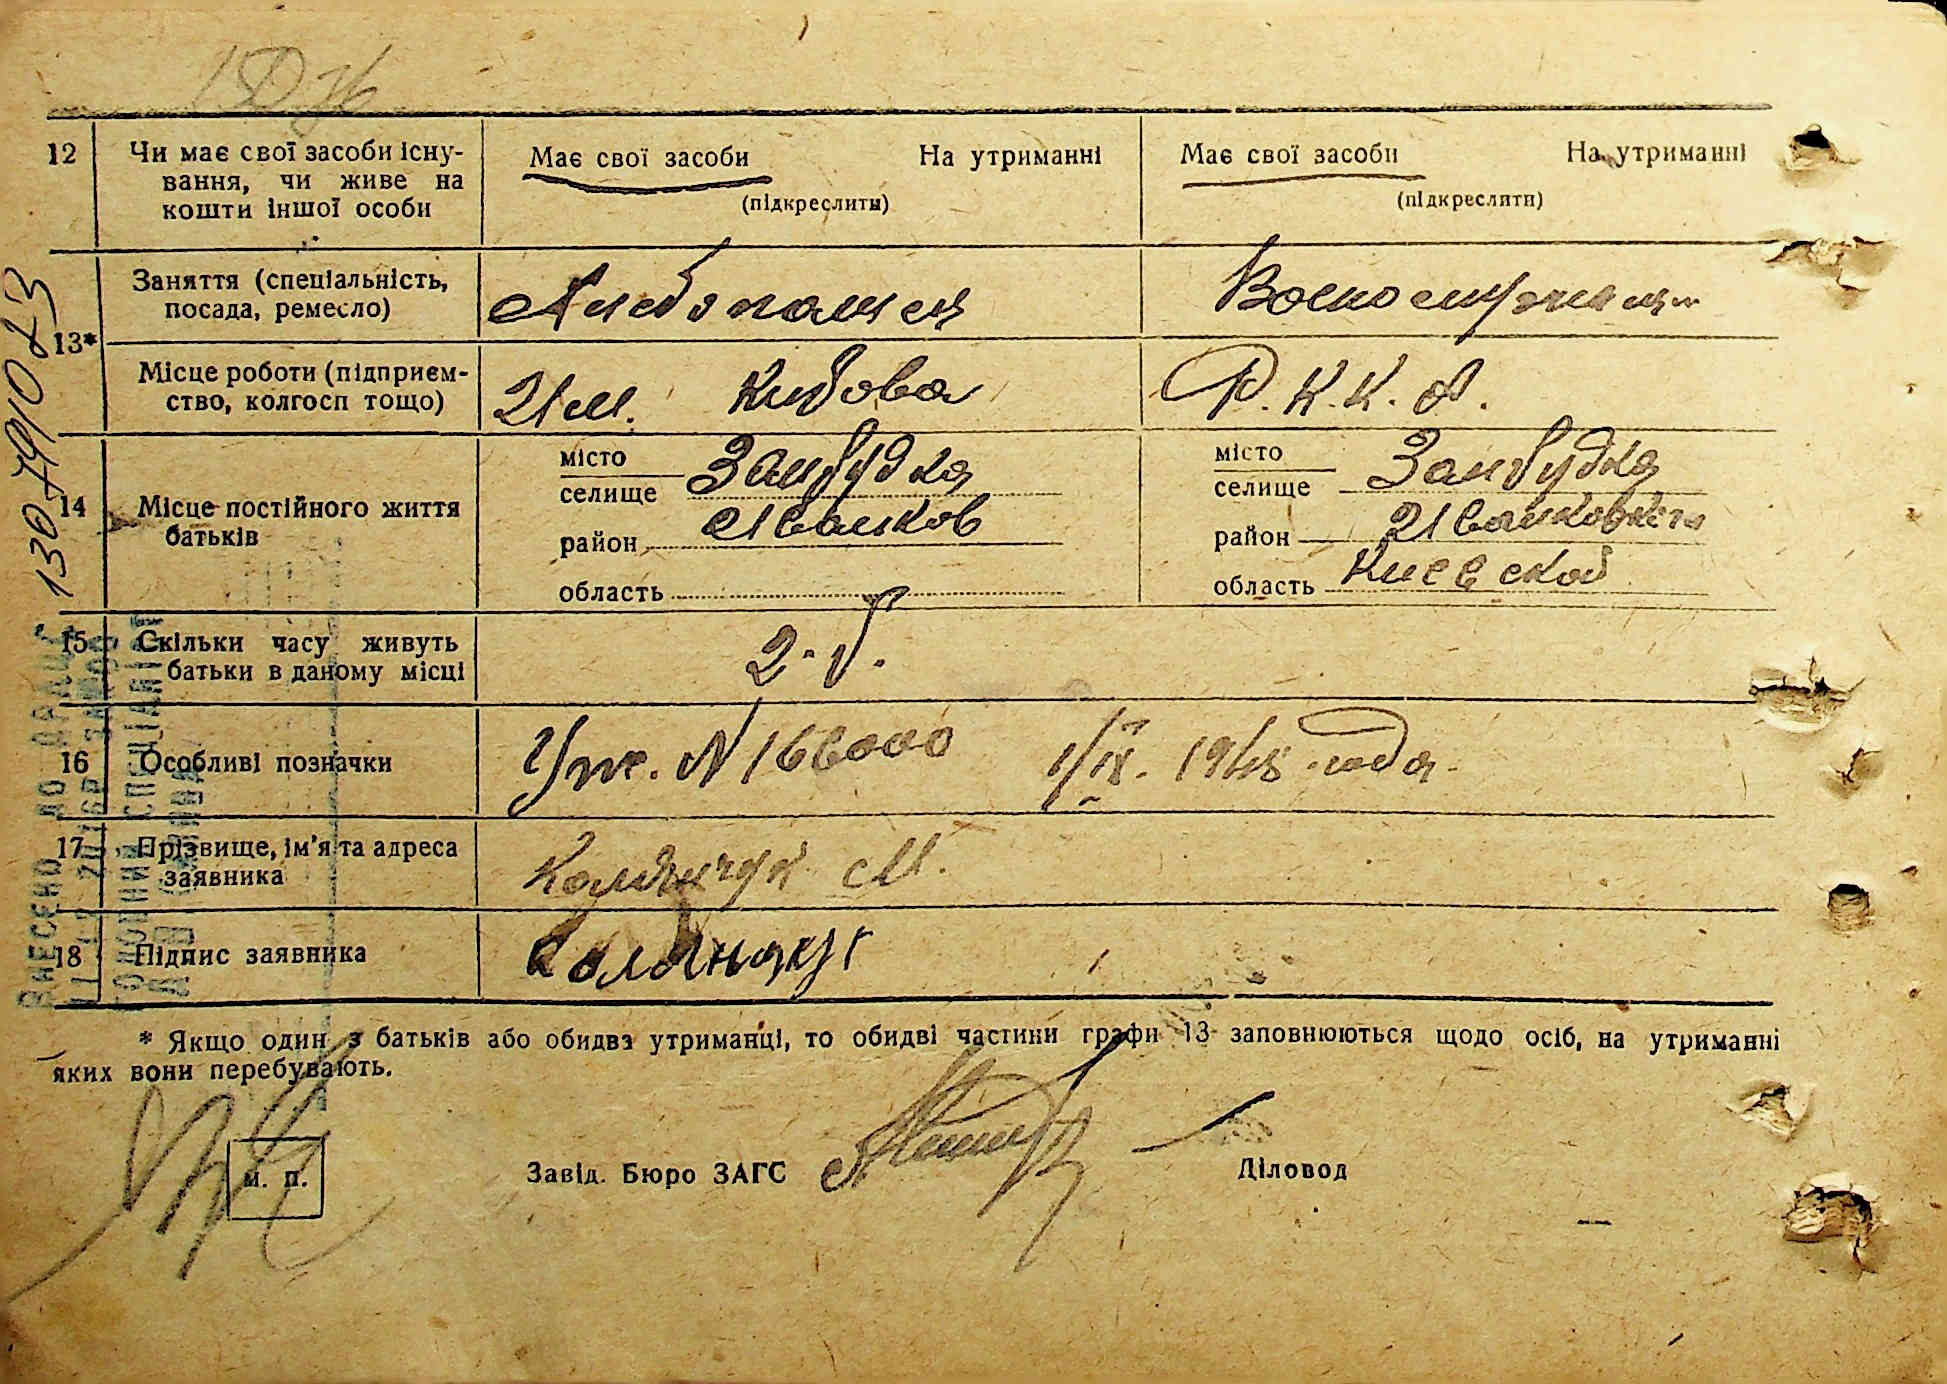 12
Чи має свої засоби існу-
вання, чи живе на
кошти іншої особи
Має свої засоби На утриманні
(підкреслити)
Має свої засоби На утриманні
(підкреслити)
13*
Заняття (спеціальність,
посада, ремесло)
Місце роботи (підприєм-
ство, колгосп тощо)
Р. К. К. А.
14
Місце постійного життя
батьків
місто
селище Замбудка
район Иванков
область
місто
селище Замбудка
район
область Киевской
15
Скільки часу живуть
батьки в даному місці
2.
16
Особливі позначки
N 166000 1/IX. 1945 года.
17
Прізвище, ім'я та адреса
заявника
М.
18
Підпис заявника
* Якщо один з батьків або обидва утриманці, то обидві частини графи 13 заповнюються щодо осіб, на утриманні
яких вони перебувають.
м. п.
Завід. Бюро ЗАГС
Діловод
ВНЕСЕНО ДО ДРАЦС